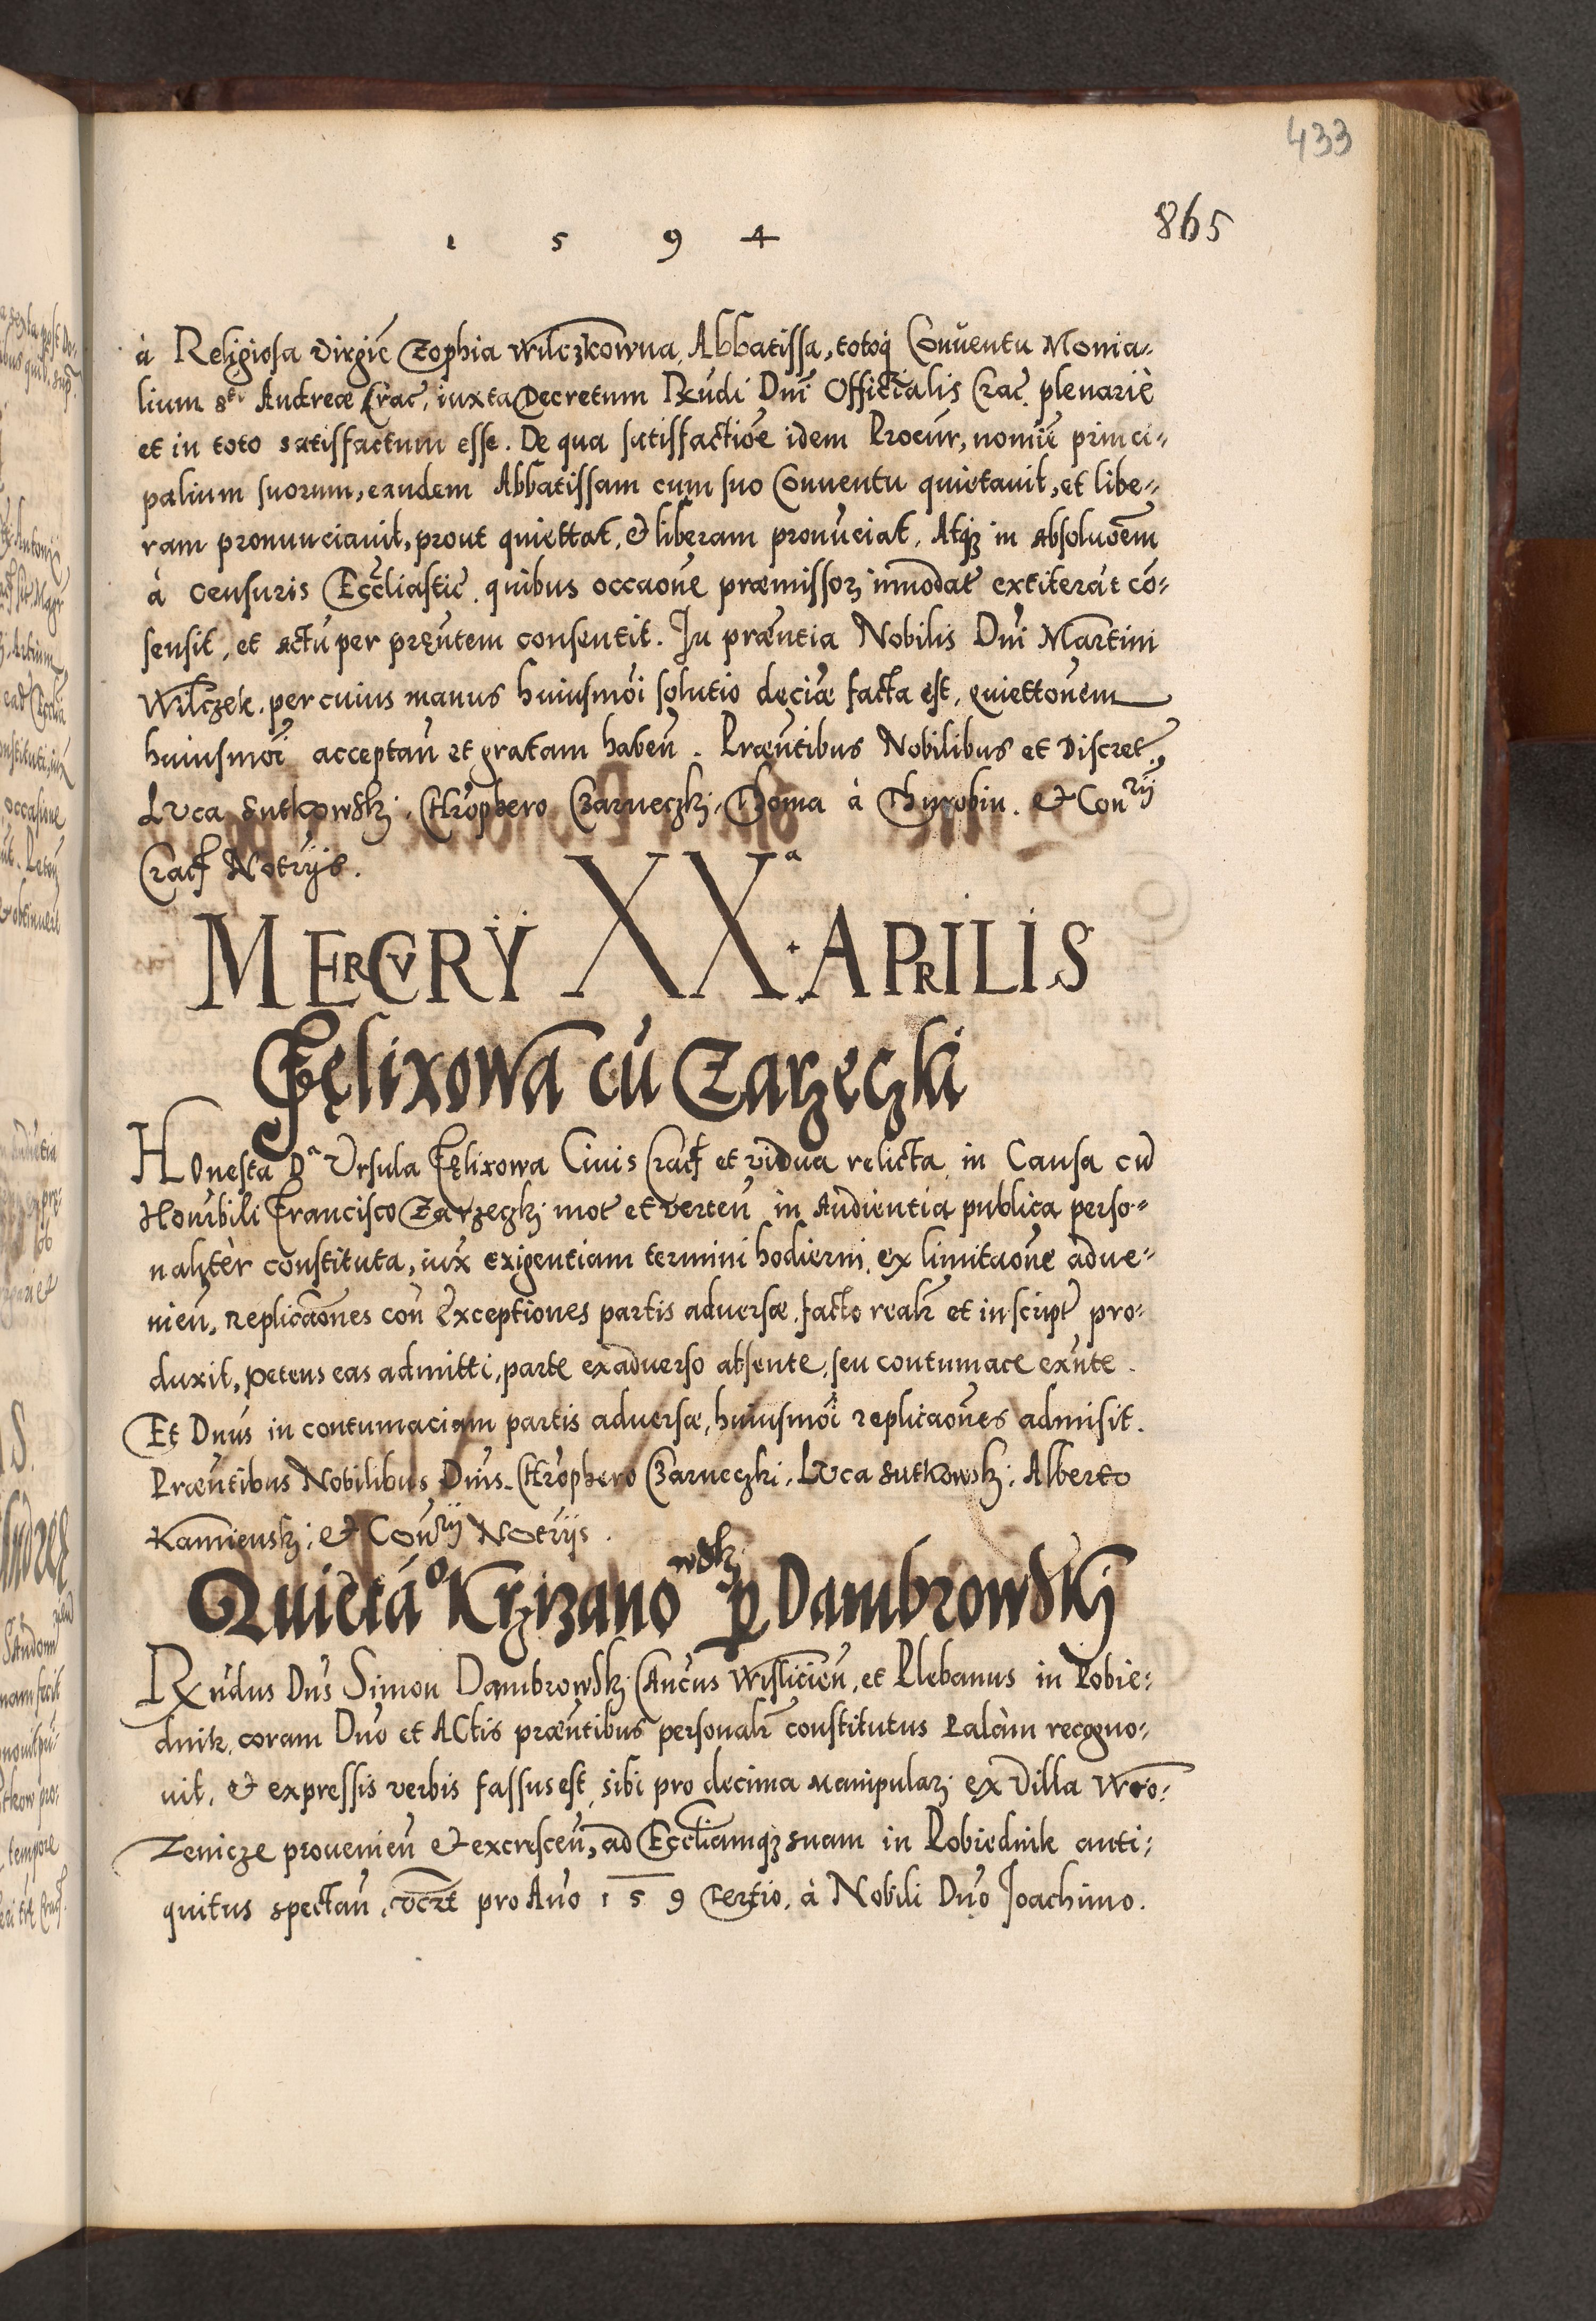 433
865
1 5 9 4
à Religiosa Virgie Zophia Wilczkowna, Abbatissa, totoq Conuentu Monia-
lium sti Andreæ Crac, iuxta Decretum Rxndi Dni Officialis Crac. plenariè
et in toto satisfactum esse. De qua satisfactioe idem Procur, nomie princi-
palium suorum, eandem Abbatissam cum suo Conuentu quietauit, et libe-
ram pronunciauit, prout quiettat, & liberam pronuciat. Atqz in absoluoem
à censuris Ecclliastic. quibus occaone præmissorz innodat extiterat co-
sensit, et actu per prẹntem consentit. In præntia Nobilis Dni Martini
Wilczek. per cuius manus huiusmoi solutio deciæ facta est, quiettonem
huiusmoi acceptan et gratam haben. Præntibus Nobilibus et Discret,
Luca Sutkowskj, Chrophero Czarneczkj, Thoma à Thurobin. & Conrij
Crac Notrijs.
MERCVRY XXa APRILIS
Fęlixowa cu Zarzęczki
Honesta Da Vrsula Fęlixowa Ciuis Crac et vidua relicta in Causa cu
Honrbili Francisco Zarzeczkj mot et verten in Audientia publica perso-
naliter constituta, iux exigentiam termini hodierni, ex limitaone adue-
nien, replicaones con Exceptiones partis aduersæ facto realr et in script pro-
duxit, petens eas admitti, parte exaduerso absente, seu contumace exnte.
Et Dnus in contumaciam partis aduersæ, huiusmoi replicaones admisit.
Præntibus Nobilibus Dnis. Chrophero Czarneczki, Luca Sutkowskj, Alberto
Kamienskj, & Conrij Notrijs.
Quieta o Krzizanowskj p Dambrowskj
Rxndus Dns Simon Dambrowskj Cancus Wislicien, et Plebanus in Pobie-
dnik, coram Dno et Actis præntibus personalr constitutus Palàm recogno-
uit, & expressis verbis fassus est, sibi pro decima manipularj ex Villa Wro-
zenicze prouenien & excrescen, ad Ecclliamqz suam in Pobiednik anti-
quitus spectan, vczt pro Ano 159 tertio, à Nobili Dno Joachimo.